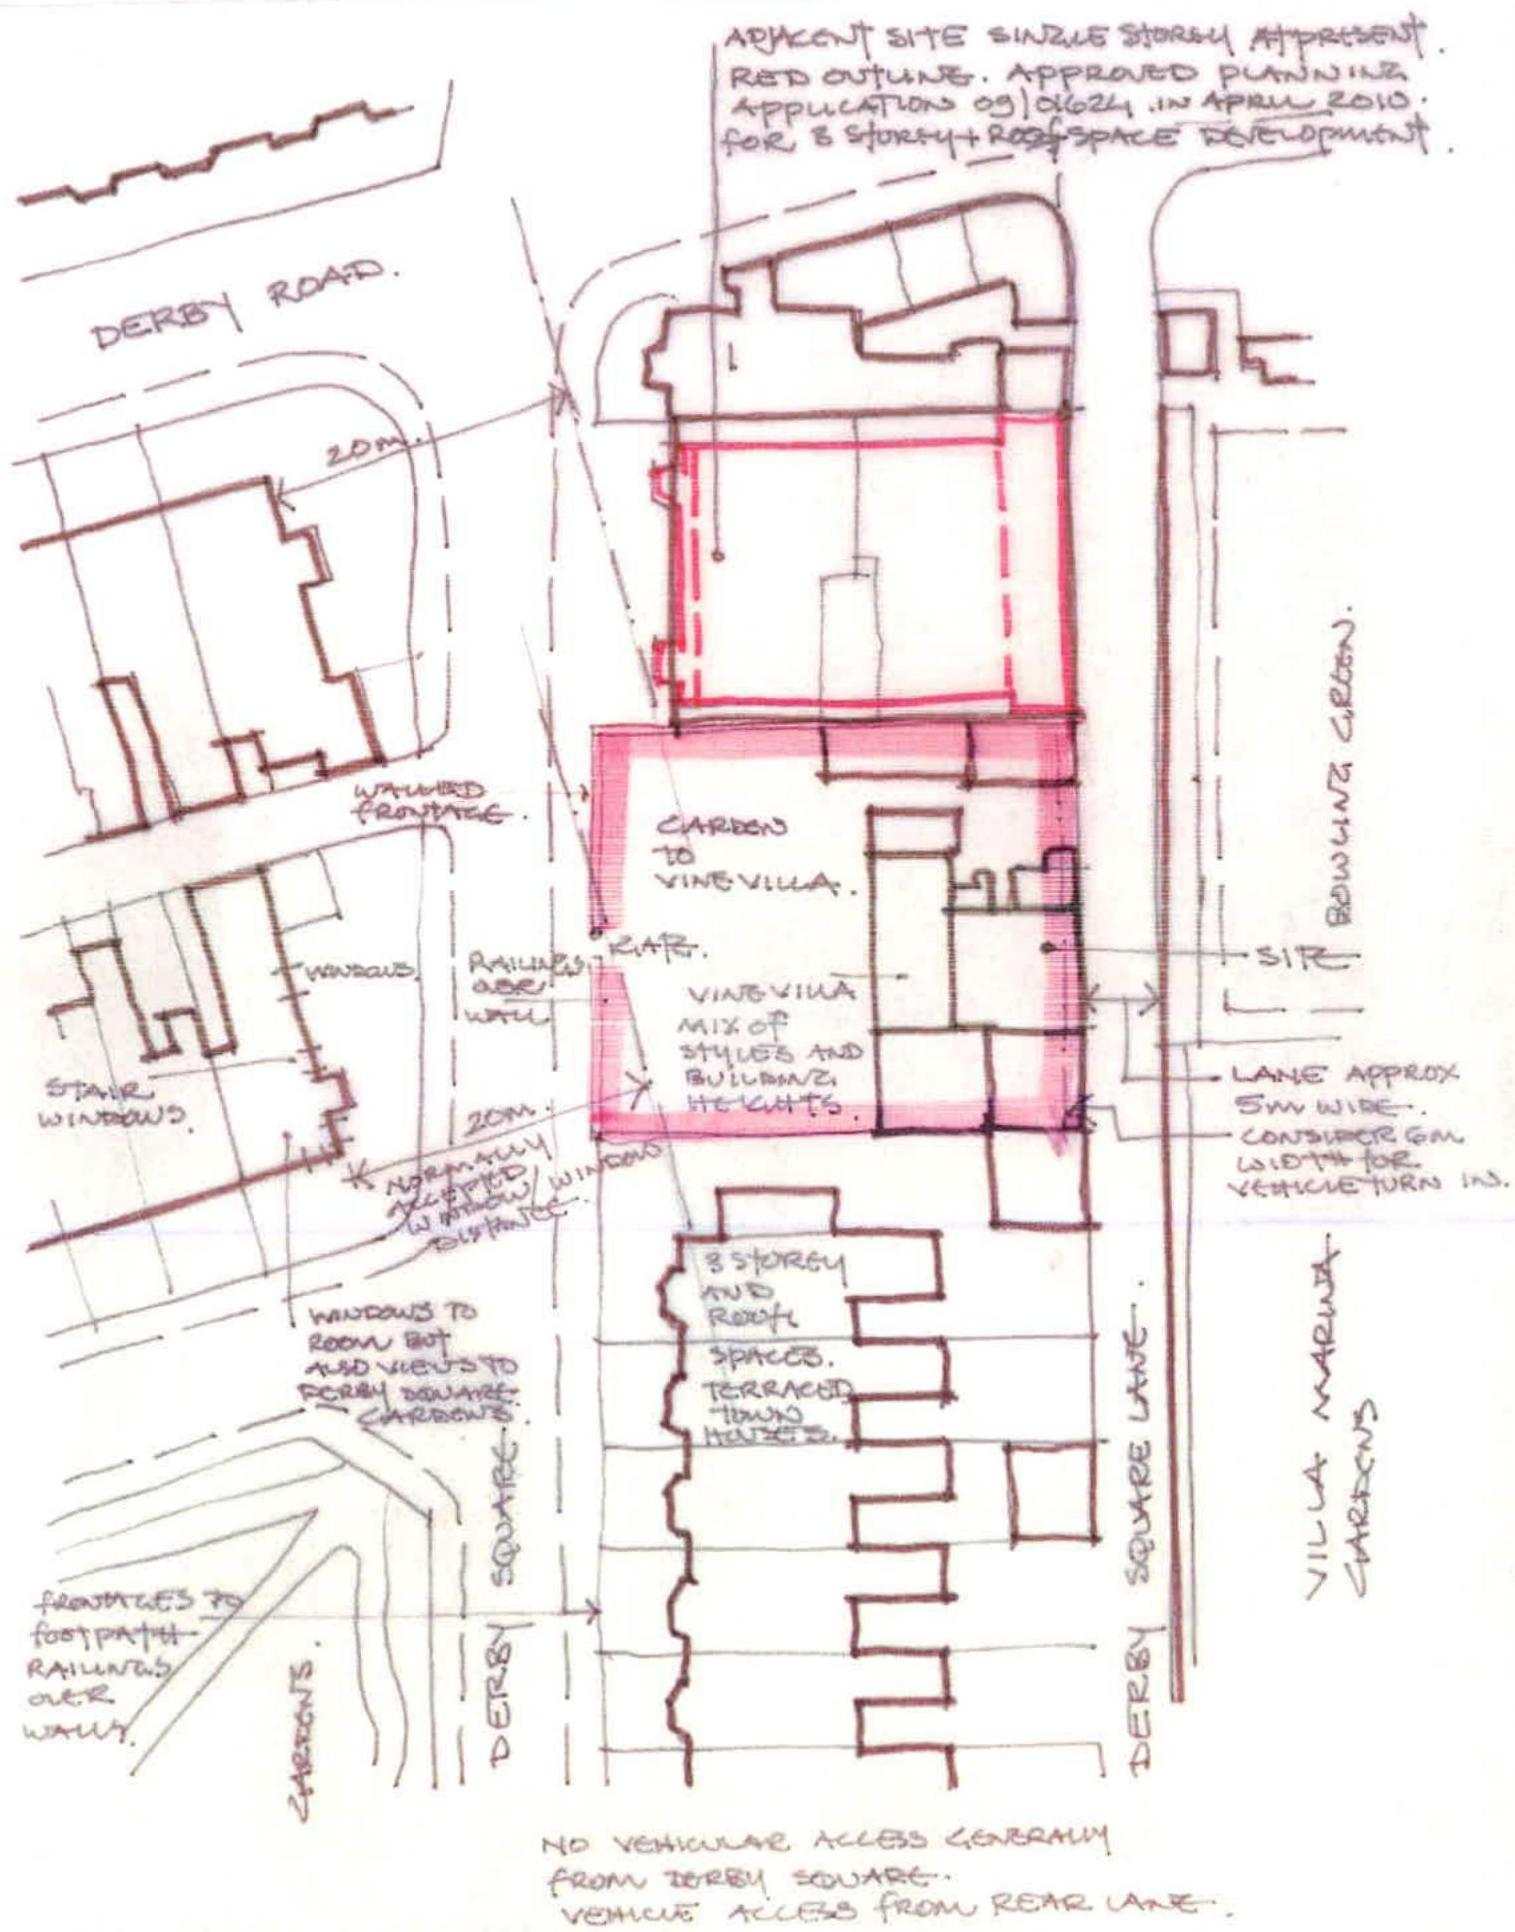 ADJACENT SITE SINGLE STOREY AT PRESENT.
RED OUTLINE. APPROVED PLANNING
APPLICATION 09/01624 .IN APRIL 2010.
FOR 3 STOREY + ROOFSPACE DEVELOPMENT.
DERBY ROAD.
20m.
WALLED
FRONTAGE.
GARDEN
TO
VINE VILLA.
BOWLING GREEN.
WINDOWS.
RAILINGS
OVER
WALL
VINE VILLA
MIX OF
STYLES AND
BUILDING
HEIGHTS.
SITE
STAIR
WINDOWS.
LANE APPROX
5m WIDE.
CONSIDER 6m
WIDTH FOR
VEHICLE TURN IN.
20m.
NORMALLY
ACCEPTED
WINDOW/WINDOW
DISTANCE.
WINDOWS TO
ROOM BUT
ALSO VIEWS TO
DERBY SQUARE
GARDENS.
3 STOREY
AND
ROOF
SPACES.
TERRACED
TOWN
HOUSES.
DERBY SQUARE.
DERBY SQUARE LANE.
VILLA MARINA
GARDENS
FRONTAGES TO
FOOTPATH
RAILINGS
OVER
WALLS.
GARDENS.
NO VEHICULAR ACCESS GENERALLY
FROM DERBY SQUARE.
VEHICLE ACCESS FROM REAR LANE.